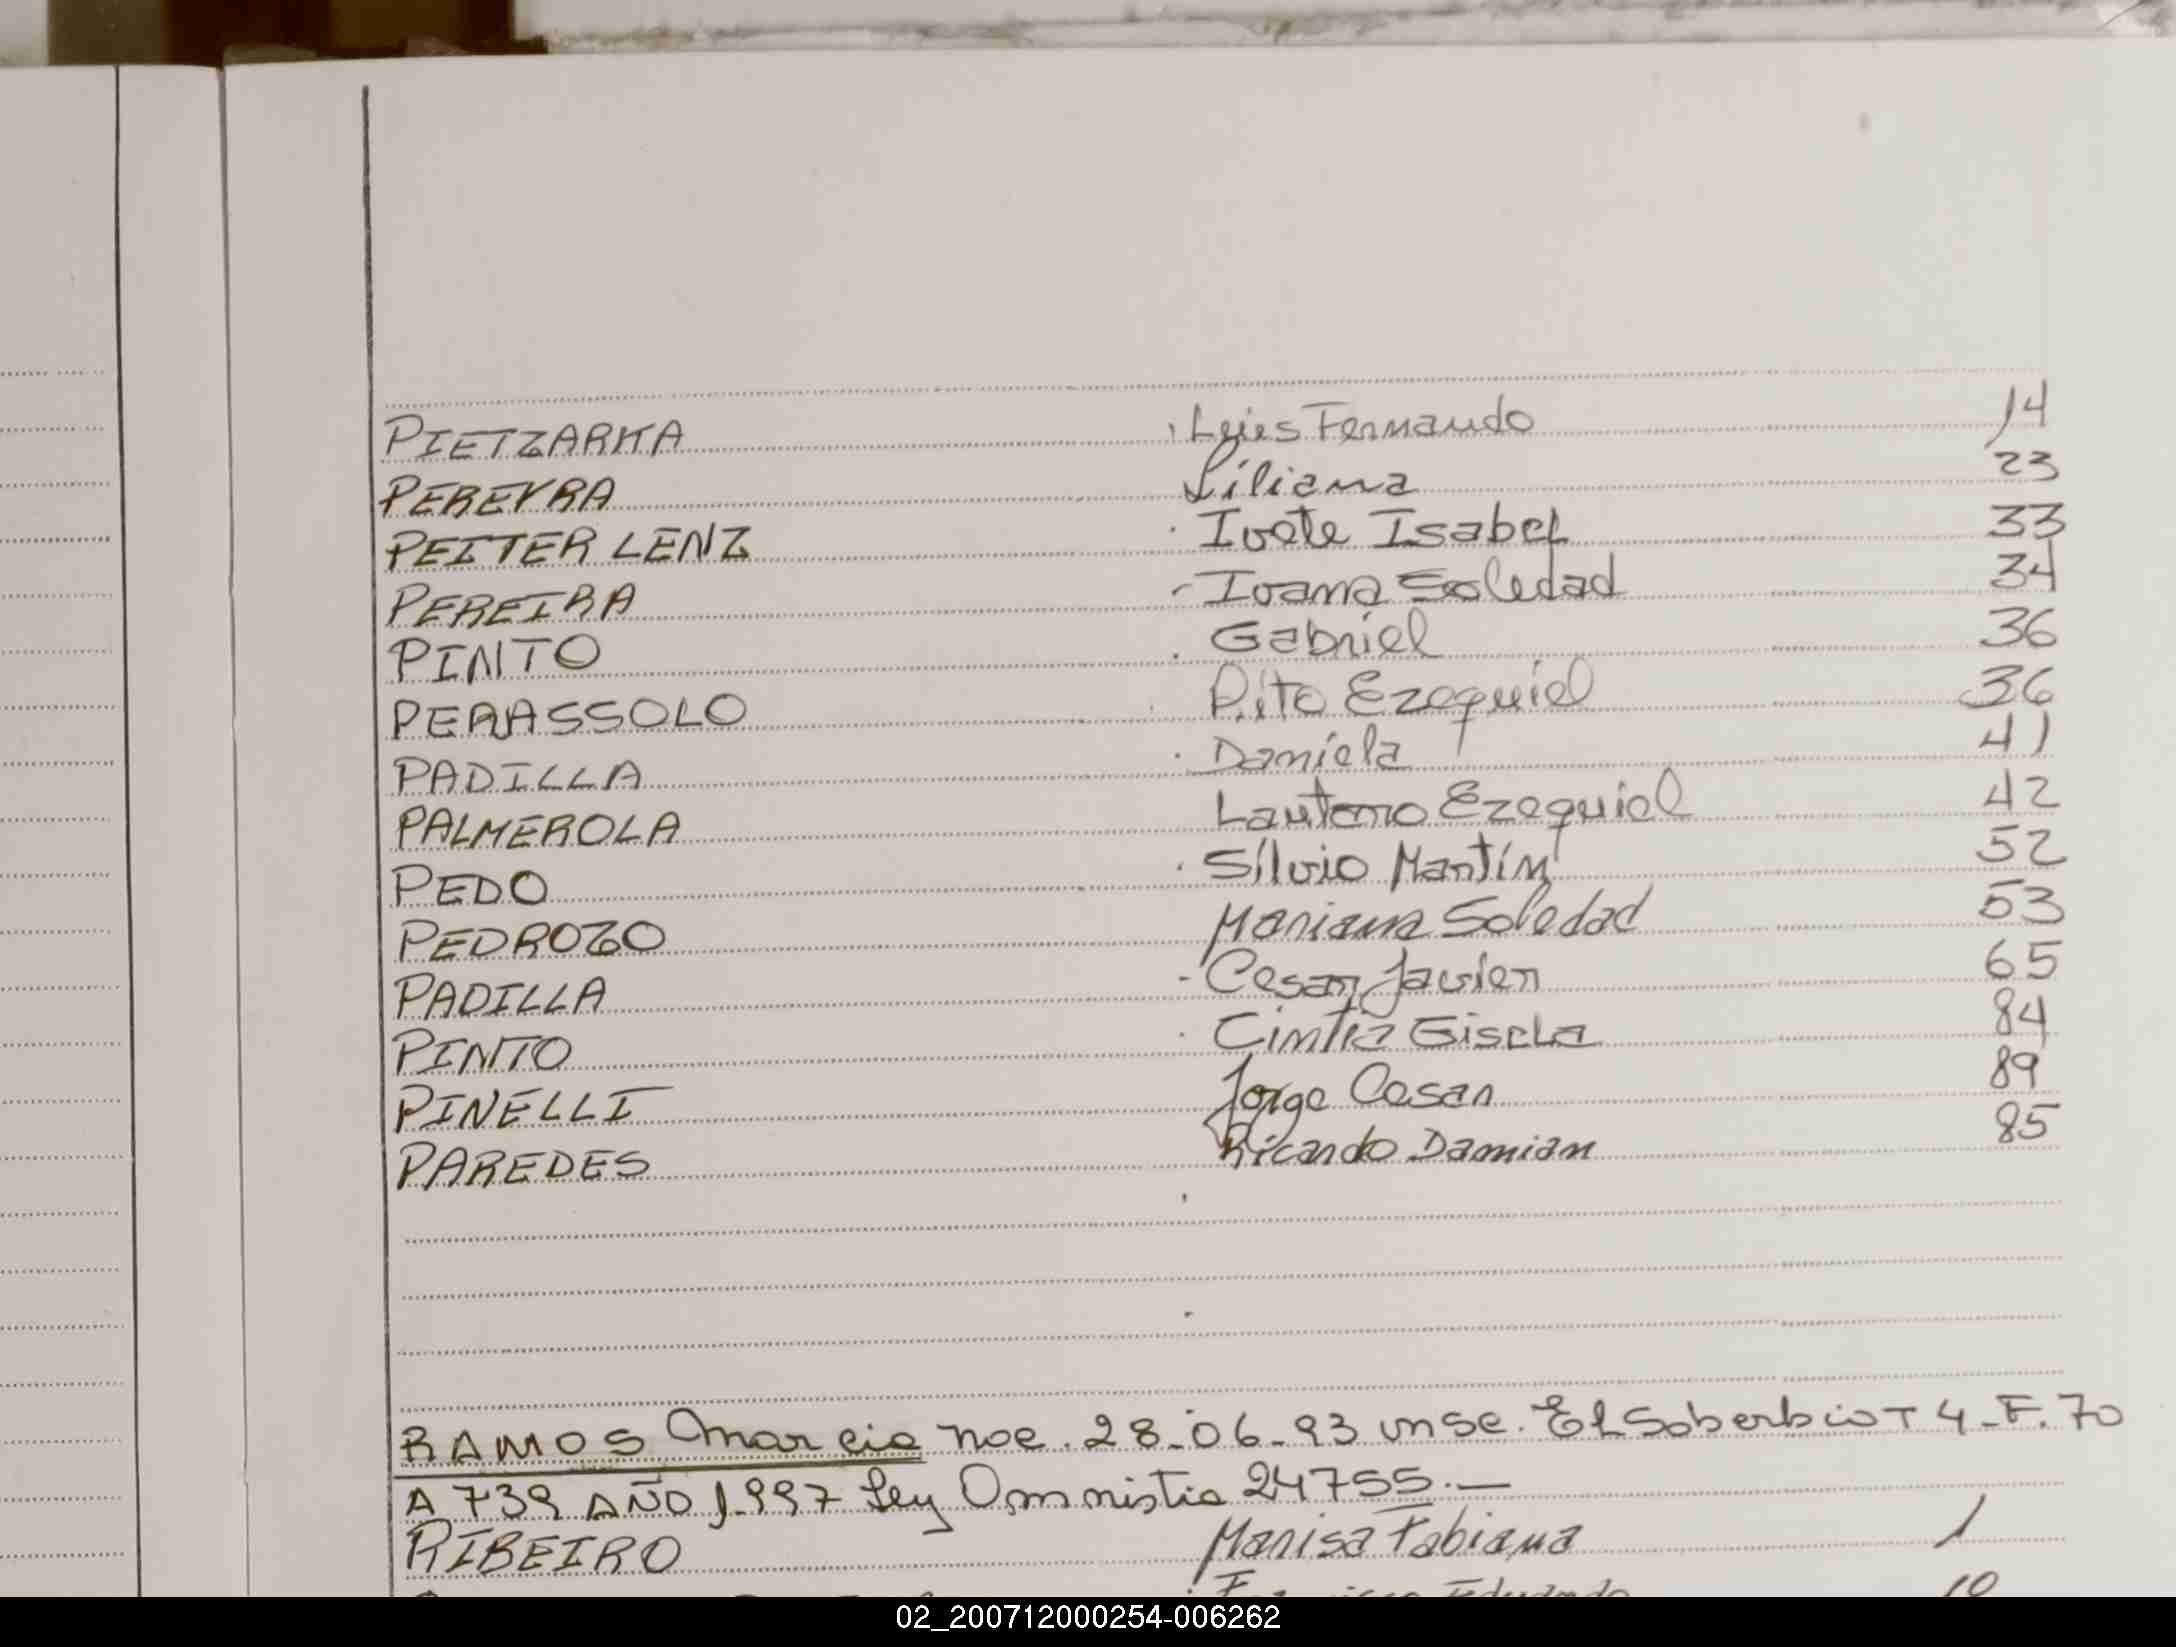 PIETZARKA Luis Fernando 14
PEREYRA Liliana 23
PEITER LENZ Ivete Isabel 33
PEREIRA Ivana Soledad 34
PINTO Gabriel 36
PERASSOLO Rito Ezequiel 36
PADILLA Daniela 41
PALMEROLA Lautaro Ezequiel 42
PEDO Silvio Martín 52
PEDROZO Mariana Soledad 53
PADILLA Cesar Javier 65
PINTO Cintia Gisela 84
PINELLI Jorge Cesar 89
PAREDES Ricardo Damian 85
RAMOS Marcia noe. 28-06-93 insc. El Soberbio T 4-F. 70
A 739 AÑO 1.997 Ley Omnistia 24755.—
RIBEIRO Marisa Fabiana 1
Eduardo 10
02_200712000254-006262